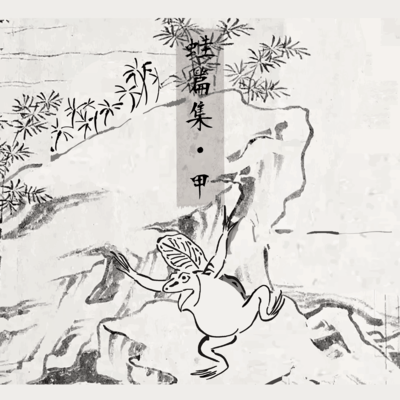 蛙篇集·甲